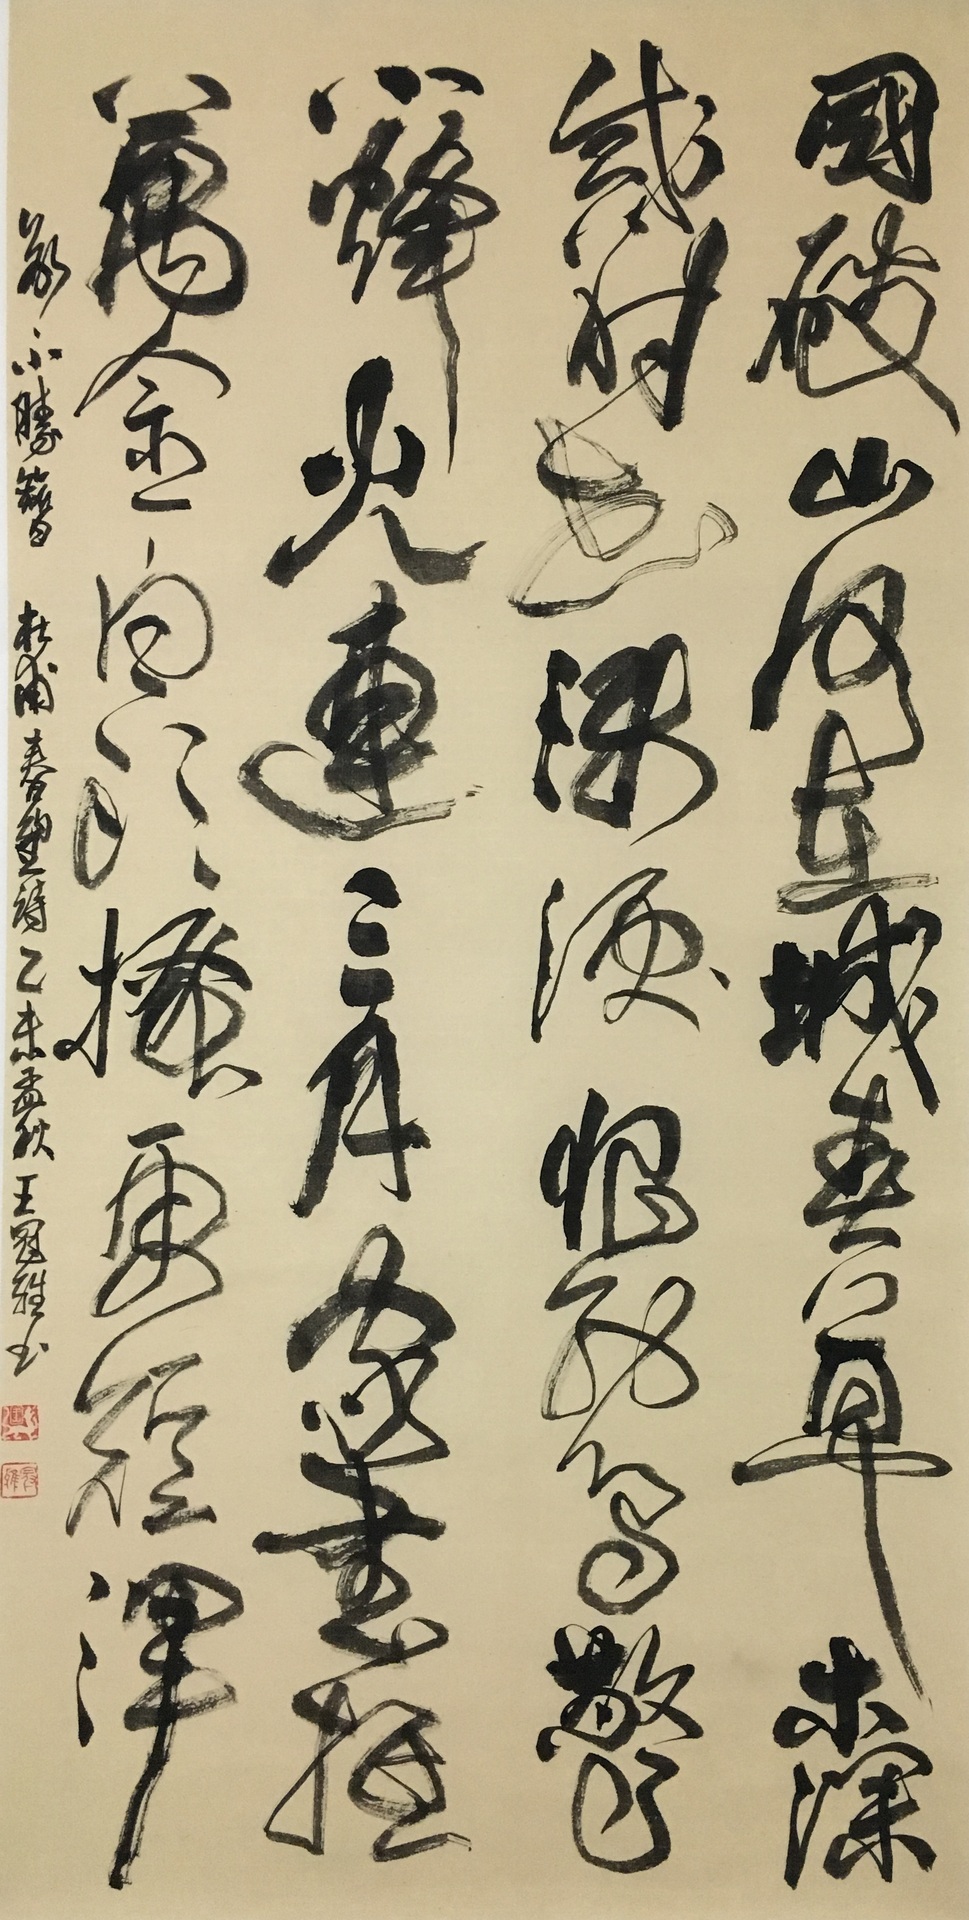 國破山河在城春草木深
感時花濺淚恨別鳥驚
心烽火連三月家書抵
萬金白頭搔更短渾
欲不勝簪 杜甫春望詩乙未孟秋王冠書